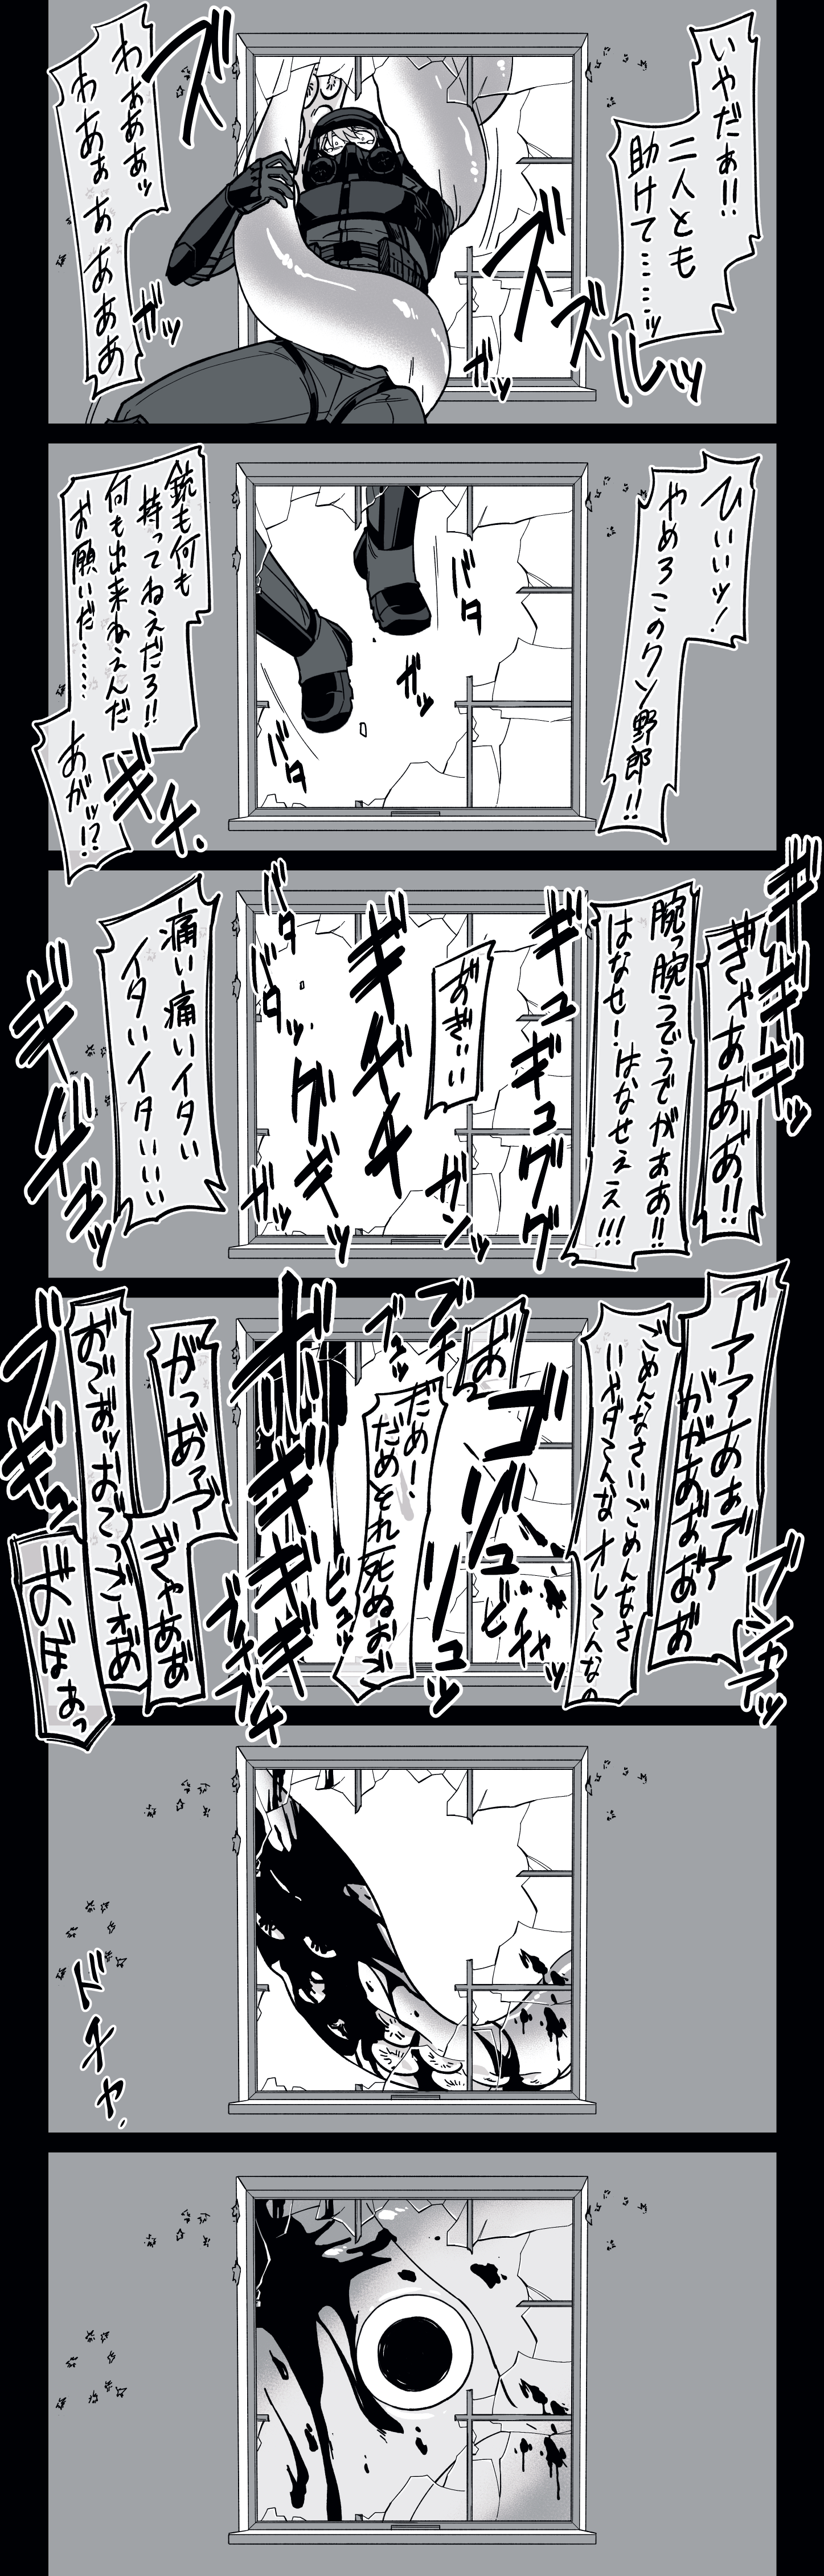 いやだぁ!!
二人とも
助けて……ッ
ズ
ズ
ズ
ルッ
ガッ
ズ
わぁぁぁッ
わあぁぁあああぁ
ガッ
ひぃいッ!
やめろこのクソ野郎!!
バタ
ガッ
バタ
銃も何も
持ってねえだろ!!
何も出来ねえんだ
お願いだ……
あがッ!?
ギチ、
ぎゃああ゙あ゙!!
腕っ腕うでうでがああ!!
はなせ!はなせえぇ!!!
ギュギュググ
あ゙ぎぃい
ガンッ
ギチチ
バタ
バタッ
グギッ
ガッ
痛い痛いイタい
イタいイタいぃい
ギチ
ごめんなさいごめんなさ
いやダこんなオレこんなの
ブシャアッ
ゴリュ
リュッ
ビチャッ
お゙
ブチ
ブュッ
だめ!
だめそれ死ぬお゙ぶ
ボギギギ
ビュッ
ブチブチブチ
がっあ゙
ぎゃあ゙あ゙
ブギュ
お゙ぼはぁっ
ドチャ、